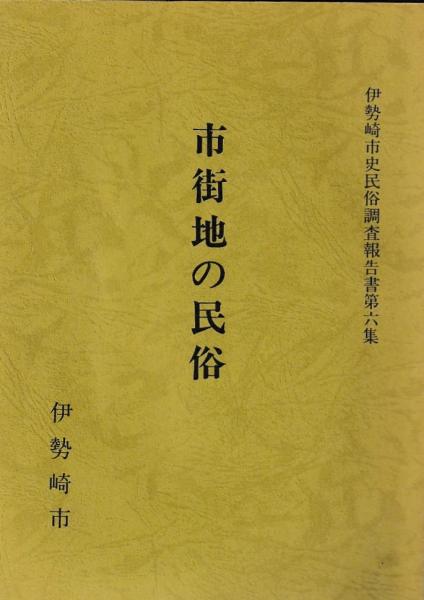 伊勢崎市史民俗調査報告書第六集
市街地の民俗
伊勢崎市